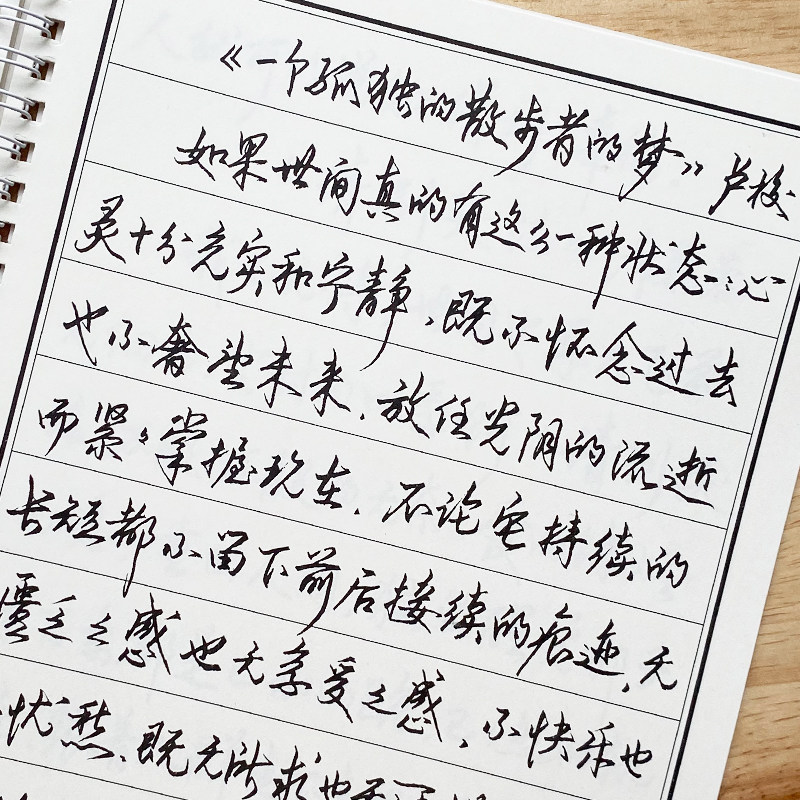 《一个孤独的散步者的梦》卢梭
如果世间真的有这么一种状态：心
灵十分充实和宁静，既不怀念过去
也不奢望未来，放任光阴的流逝
而紧紧掌握现在，不论它持续的
长短都不留下前后接续的痕迹，无
匮乏之感也无享受之感，不快乐也
忧愁，既无所求也无